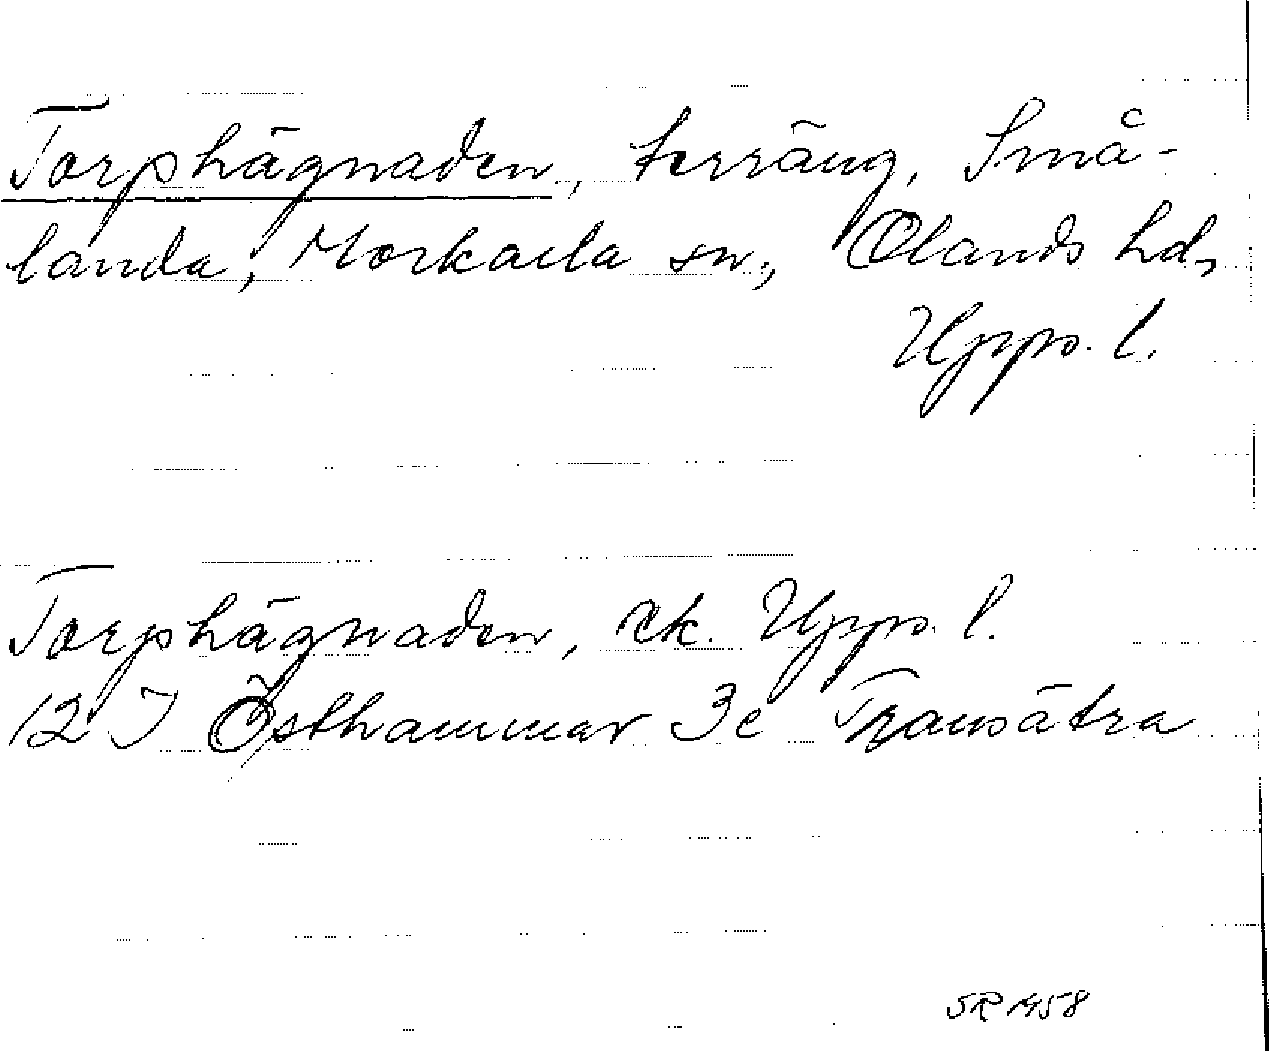 Torphägnaden, terräng, Små-
landa, Morkarla sn., Olands hd,
Upps. l.
Torphägnaden, ek. Upps. l.
12 I Östhammar 3e Transätra
SR 1958